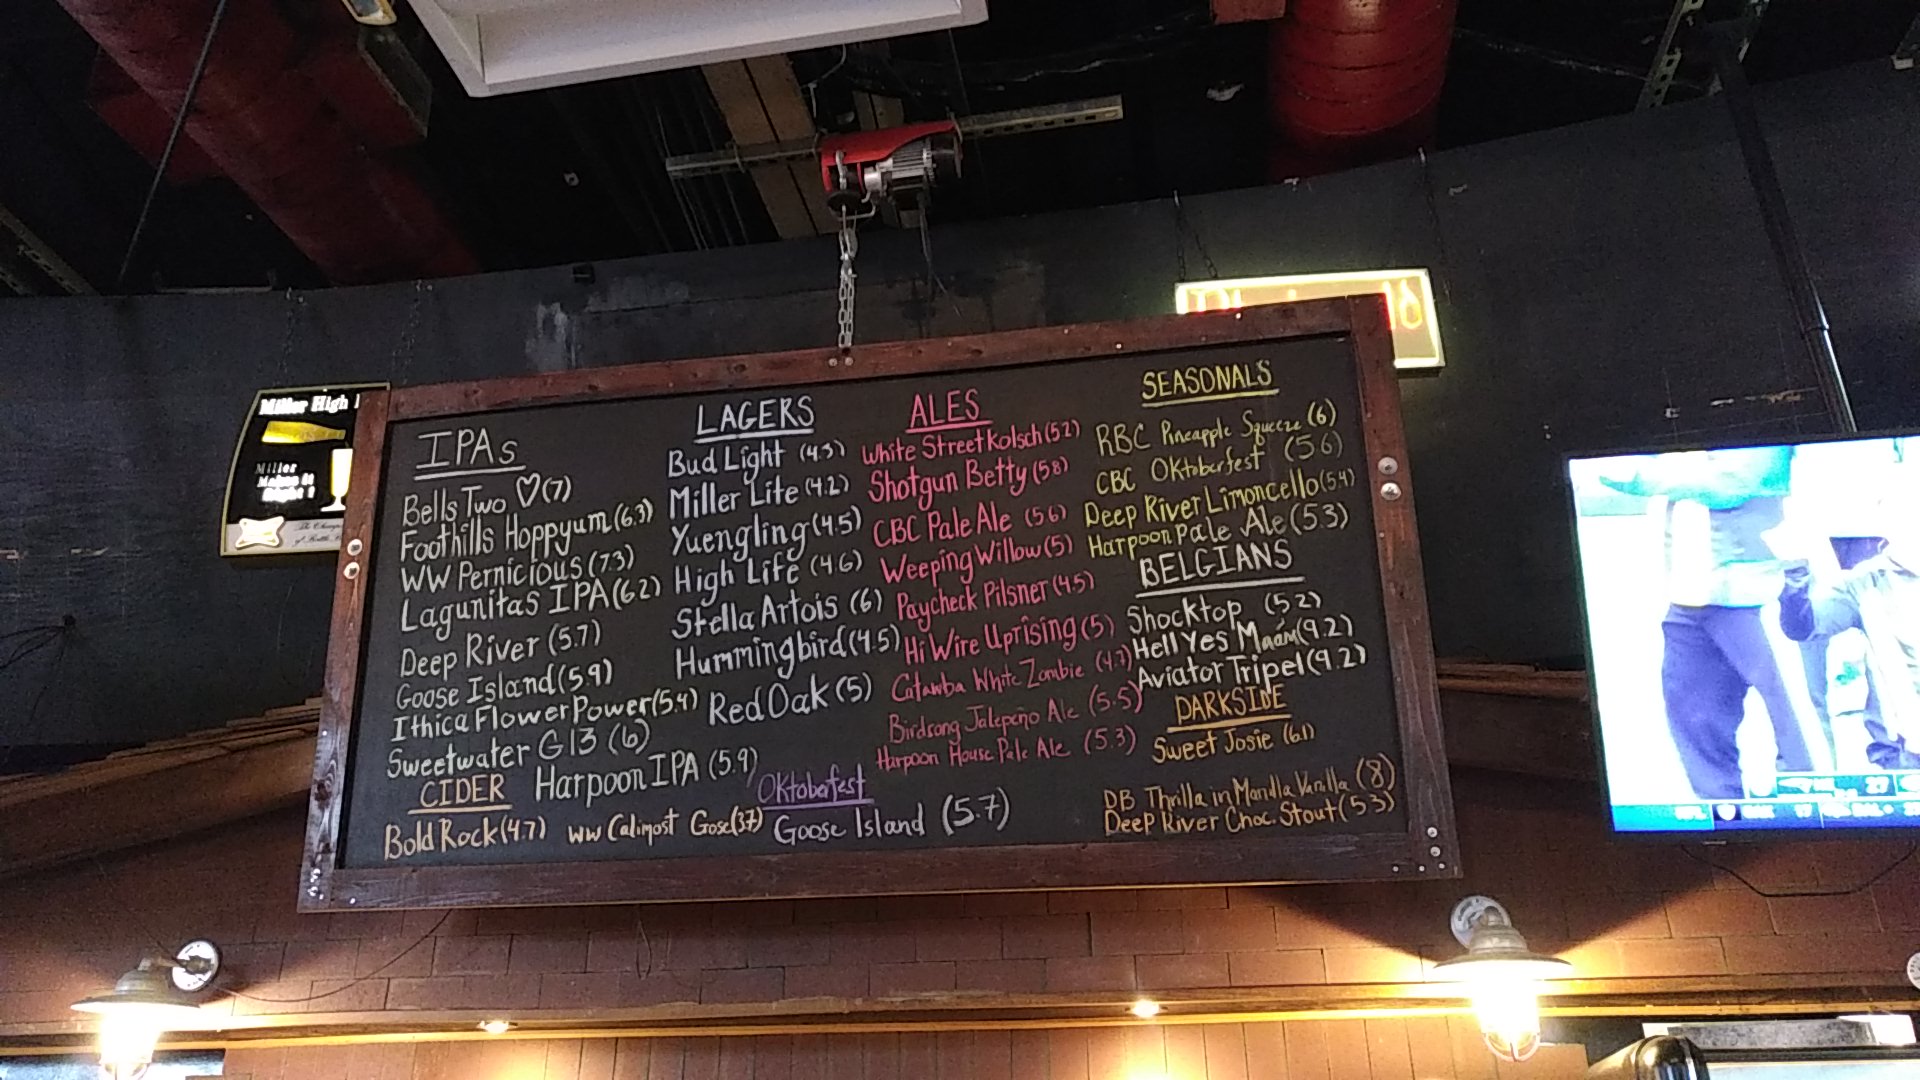 Miller High
Miller
Makes it
Right!
IPAs
Bells Two ♡(7)
Foothills Hoppyum (6.3)
WW Pernicious (7.3)
Lagunitas IPA (6.2)
Deep River (5.7)
Goose Island (5.9)
Ithica Flower Power (5.4)
Sweetwater G13 (6)
Harpoon IPA (5.9)
CIDER
Bold Rock (4.7)
WW Calimost Gose (3.7)
LAGERS
Bud Light (4.3)
Miller Lite (4.2)
Yuengling (4.5)
High Life (4.6)
Stella Artois (6)
Hummingbird (4.5)
Red Oak (5)
Oktoberfest
Goose Island (5.7)
ALES
White Street Kolsch (5.2)
Shotgun Betty (5.8)
CBC Pale Ale (5.6)
Weeping Willow (5)
Paycheck Pilsner (4.5)
Hi Wire Uprising (5)
Catawba White Zombie (4.7)
Birdsong Jalepeño Ale (5.5)
Harpoon House Pale Ale (5.3)
SEASONALS
RBC Pineapple Squeeze (6)
CBC Oktoberfest (5.6)
Deep River Limoncello (5.4)
Harpoon Pale Ale (5.3)
BELGIANS
Shocktop (5.2)
Hell Yes Maám (9.2)
Aviator Tripel (9.2)
DARKSIDE
Sweet Josie (6.1)
DB Thrilla in Manilla Vanilla (8)
Deep River Choc. Stout (5.3)
27
17